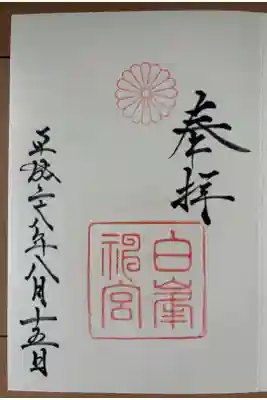 奉拝
白峯
神宮
平成二十八年八月十五日